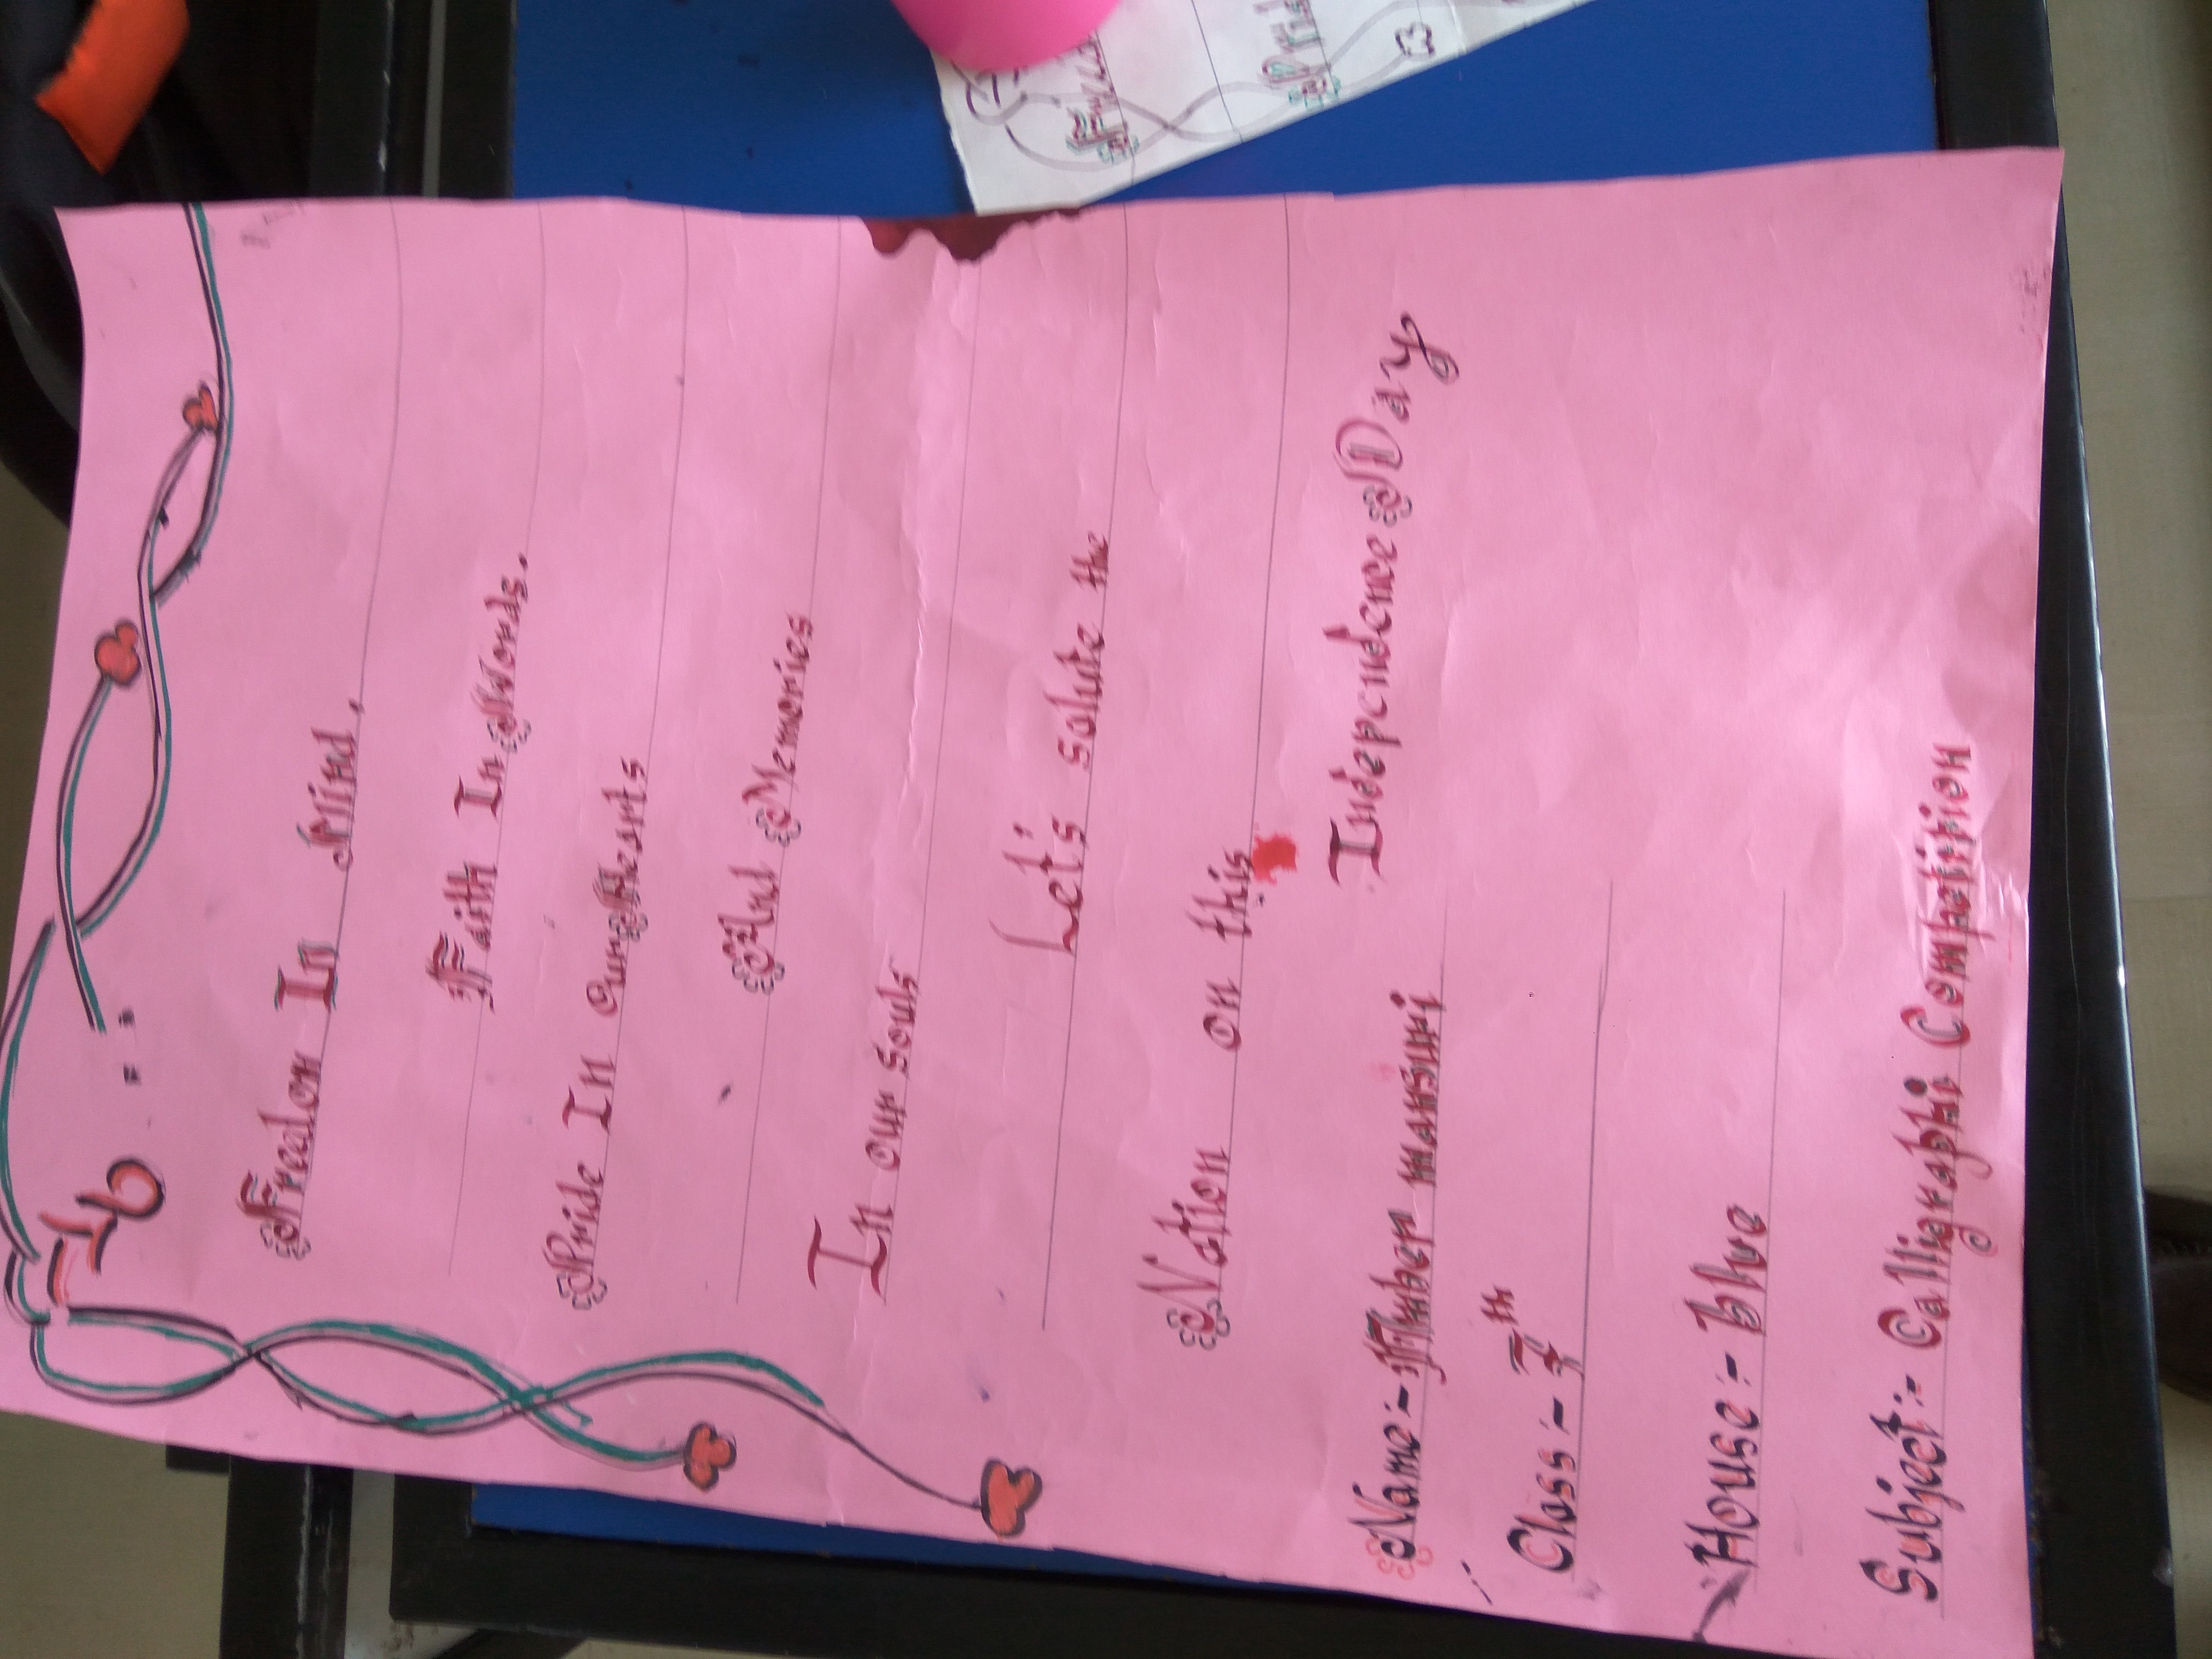 16
Freedon In Mind,
Faith In Words.
Pride In Our Hesrts
And Memories
In our souls
Let's solute the
Nation on this
Independence Day
Name:- Amber mansuri
Class:- 7th
House:- blue
Subject:- Calligraphi Compatition